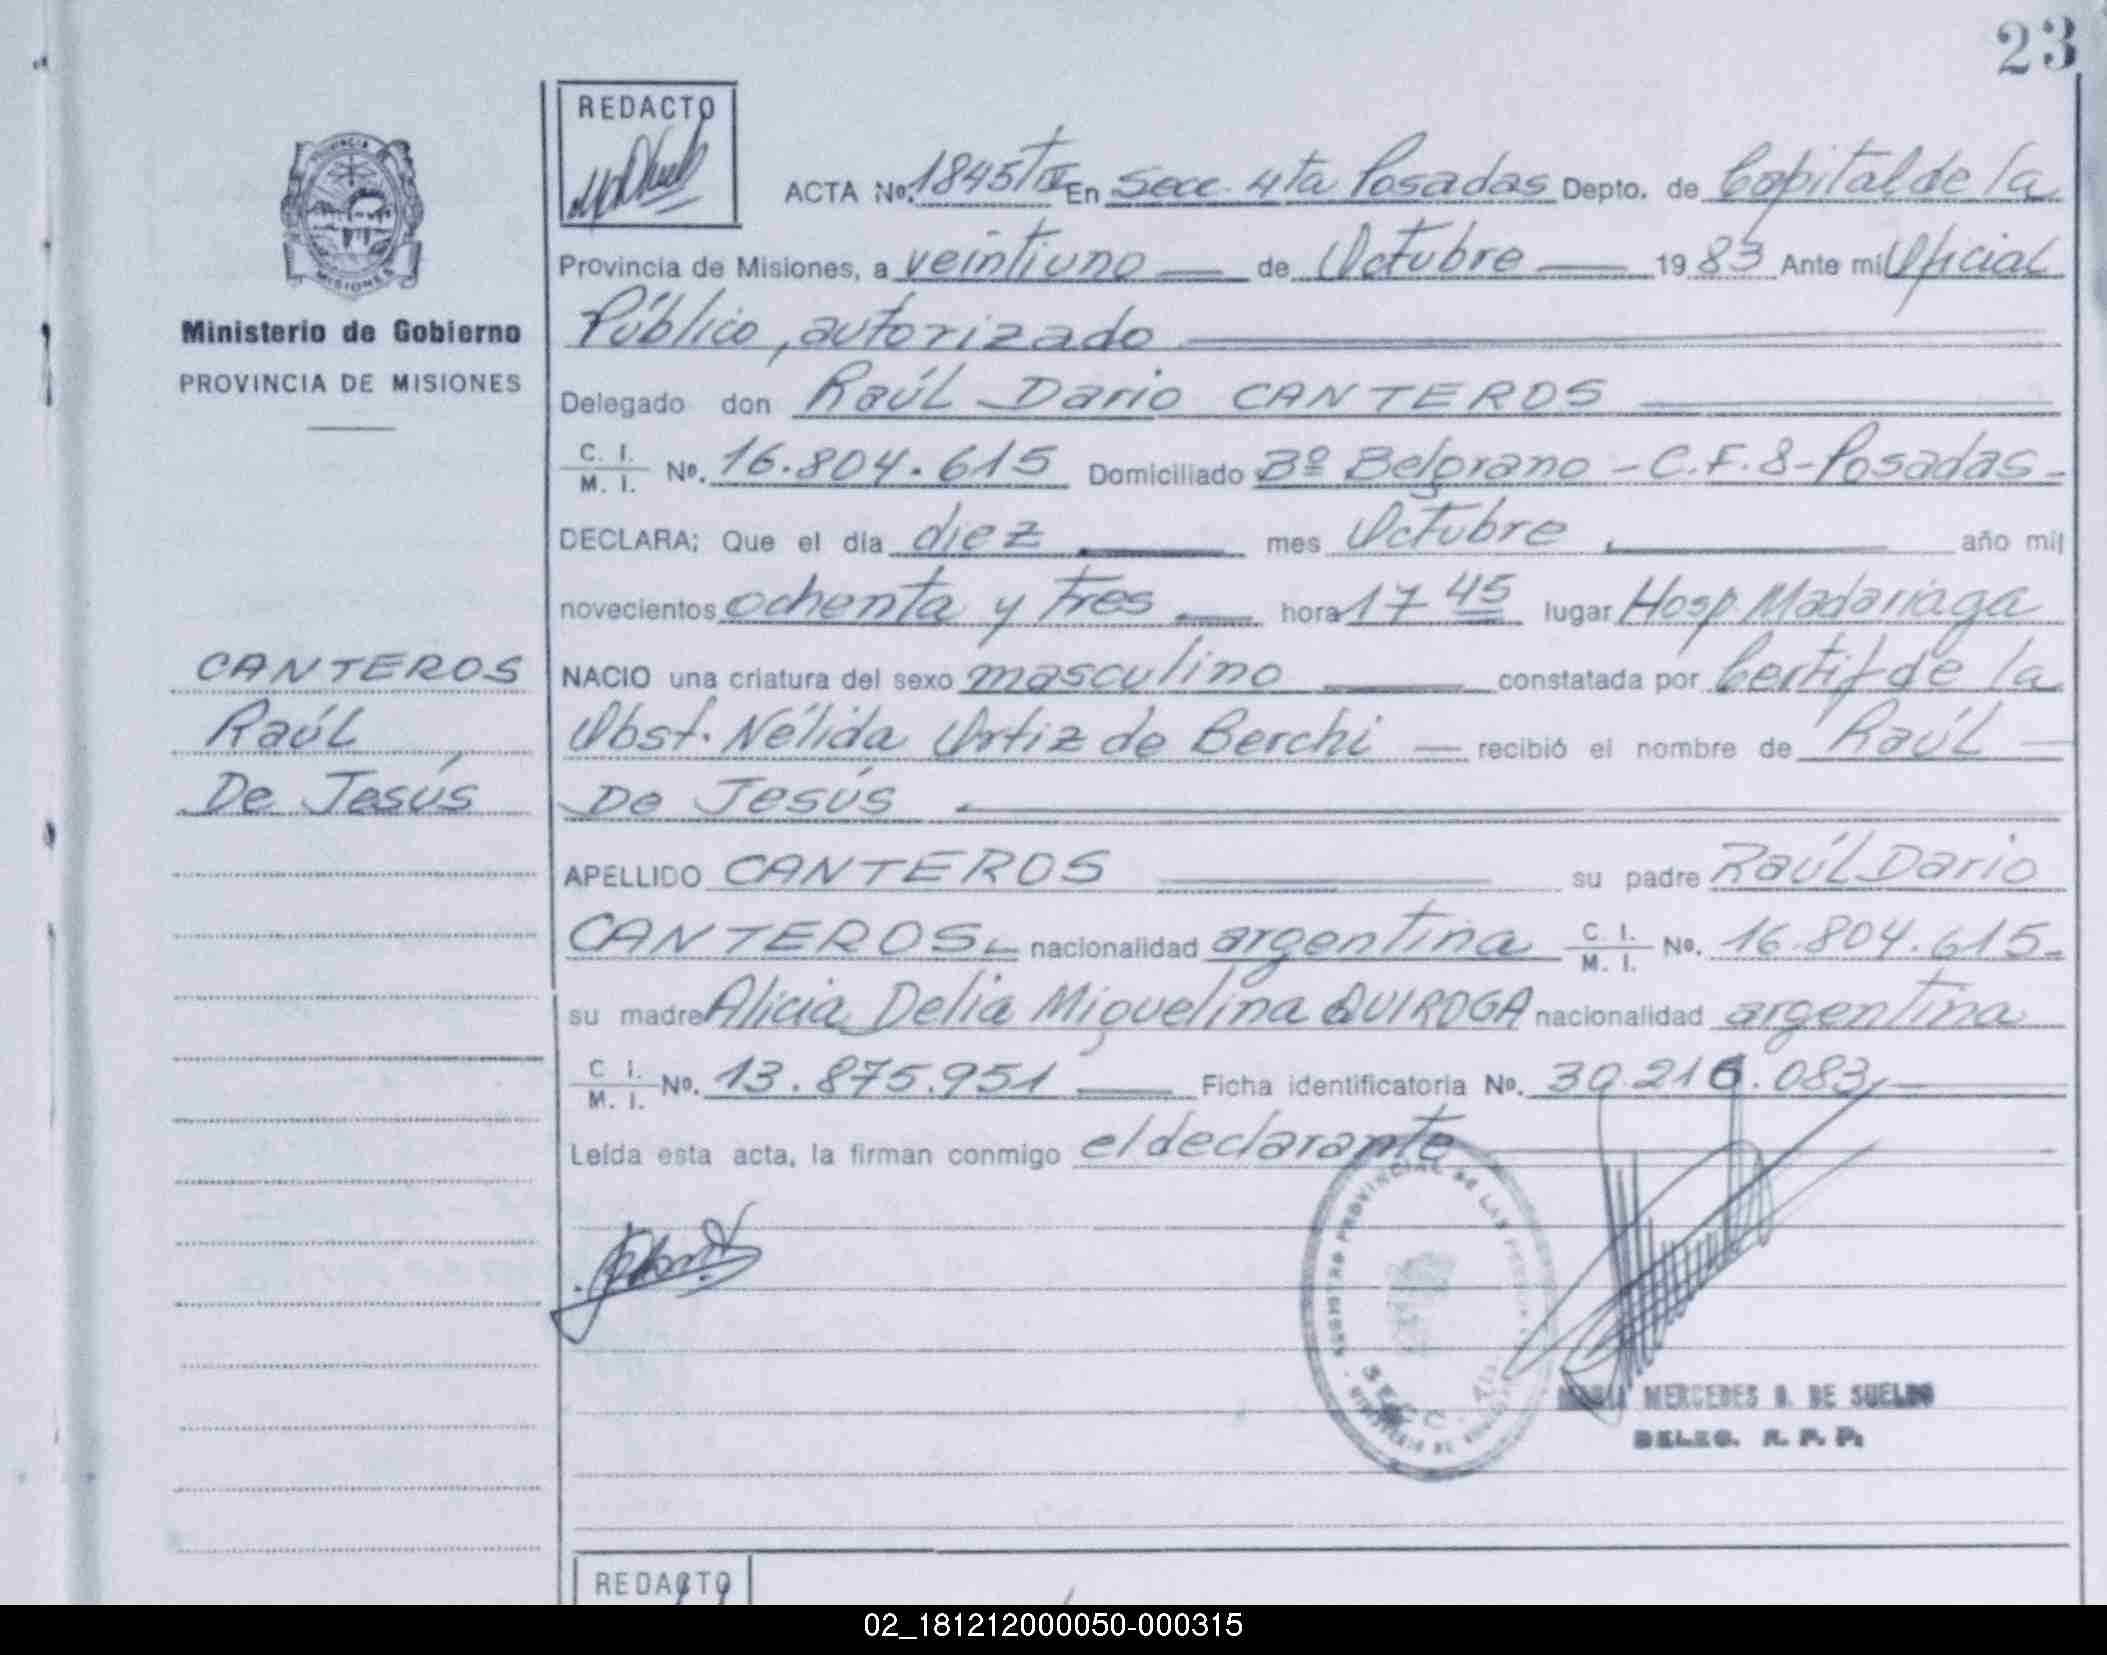 23
REDACTO
ACTA Nº. 1845 TºII En Secc. 4ta Posadas Depto. de Capital de la
Provincia de Misiones, a veintiuno de Octubre 1983 Ante mi Oficial
Público, autorizado
Ministerio de Gobierno
PROVINCIA DE MISIONES
Delegado don Raúl Dario CANTEROS
C. I. M. I. Nº. 16.804.615 Domiciliado Bº Belgrano - C.F. 8 - Posadas -
DECLARA; Que el día diez mes Octubre año mil
novecientos ochenta y tres hora 17 45 lugar Hosp. Madariaga
CANTEROS
NACIO una criatura del sexo masculino constatada por Certif de la
Raúl
Obst. Nélida Ortiz de Berchi recibió el nombre de Raúl
De Jesús
De Jesús
APELLIDO CANTEROS su padre Raúl Dario
CANTEROS nacionalidad argentina C. I. M. I. No. 16.804.615.-
su madre Alicia Delia Miguelina QUIROGA nacionalidad argentina
C. I. M. I. Nº. 13.875.951 Ficha identificatoria Nº. 30.216.083
Leída esta acta, la firman conmigo el declarante
REGISTRO PROVINCIAL DE LAS
SECC. 4ta
MARIA MERCEDES B. DE SUELDO
DELEG. R. P. P.
REDACTO
02_181212000050-000315